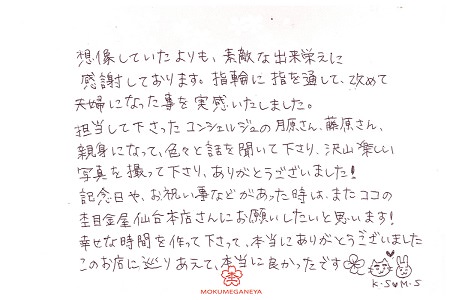 想像していたよりも、素敵な出来栄えに
感謝しております。指輪に指を通して、改めて
夫婦になった事を実感いたしました。
担当して下さったコンシェルジュの月原さん、藤原さん、
親身になって、色々と話を聞いて下さり、沢山楽しい
写真を撮って下さり、ありがとうございました！
記念日や、お祝い事などがあった時は、またココの
杢目金屋仙台本店さんにお願いしたいと思います！
幸せな時間を作って下さって、本当にありがとうございました
このお店に巡りあえて、本当に良かったです
K・S♥M・S
MOKUMEGANEYA